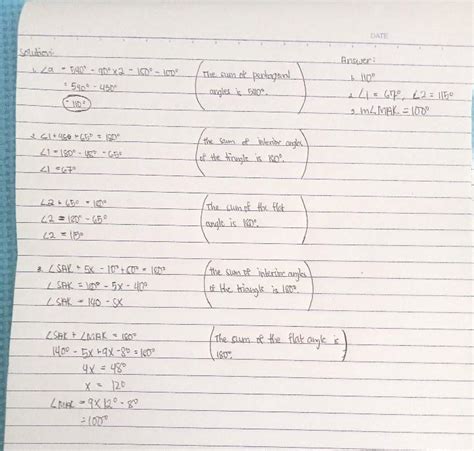 DATE
Solution:
Answer:
1. ∠a = 540° - 90° x 2 - 150° - 100°
= 540° - 430°
= 110°
(The sum of pentagonal
angles is 540°.)
1. 110°
2. ∠1 = 67°, ∠2 = 115°
3. m∠MAK = 100°
2. ∠1 + 48° + 65° = 180°
∠1 = 180° - 48° - 65°
∠1 = 67°
(The sum of interior angles
of the triangle is 180°.)
∠2 + 65° = 180°
∠2 = 180° - 65°
∠2 = 115°
(The sum of the flat
angle is 180°.)
3. ∠SAK + 5x - 10° + 60° = 180°
∠SAK = 180° - 5x - 40°
∠SAK = 140 - 5x
(The sum of interior angles
of the triangle is 180°.)
∠SAK + ∠MAK = 180°
140° - 5x + 9x - 8° = 180°
4x = 48°
x = 12°
∠MAK = 9 x 12° - 8°
= 100°
(The sum of the flat angle is
180°.)